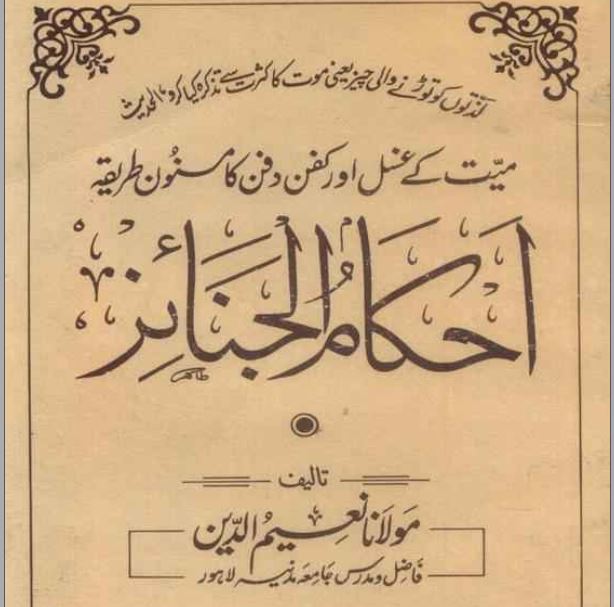 لذتوں کو توڑنے والی چیز یعنی موت کا کثرت سے تذکرہ کیا کرو، الحدیث
میّت کے غسل اور کفن دفن کا مسنُون طریقہ
اَحکامُ الجنَائِز
تالیف
مَولانا نعیمُ الدّین
فاضل و مدرس جامعہ مدنیہ لاہور